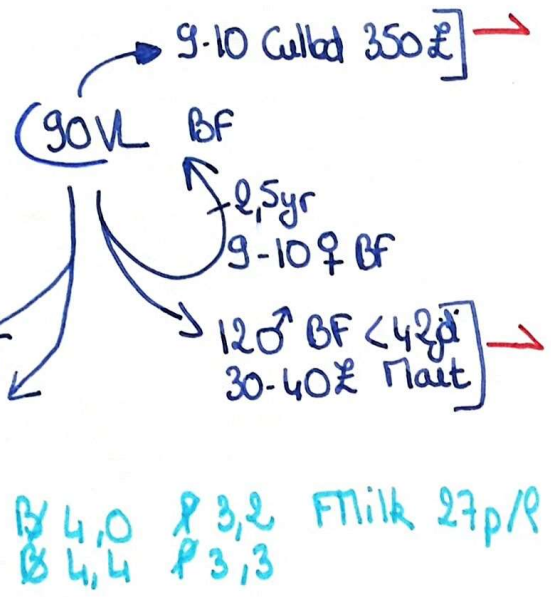 9-10 Culled 350£
90VL BF
2,5yr
9-10♀ BF
12♂ BF <42jd
30-40£ Mart
B 4,0 P 3,2 Milk 27p/l
B 4,4 P 3,3